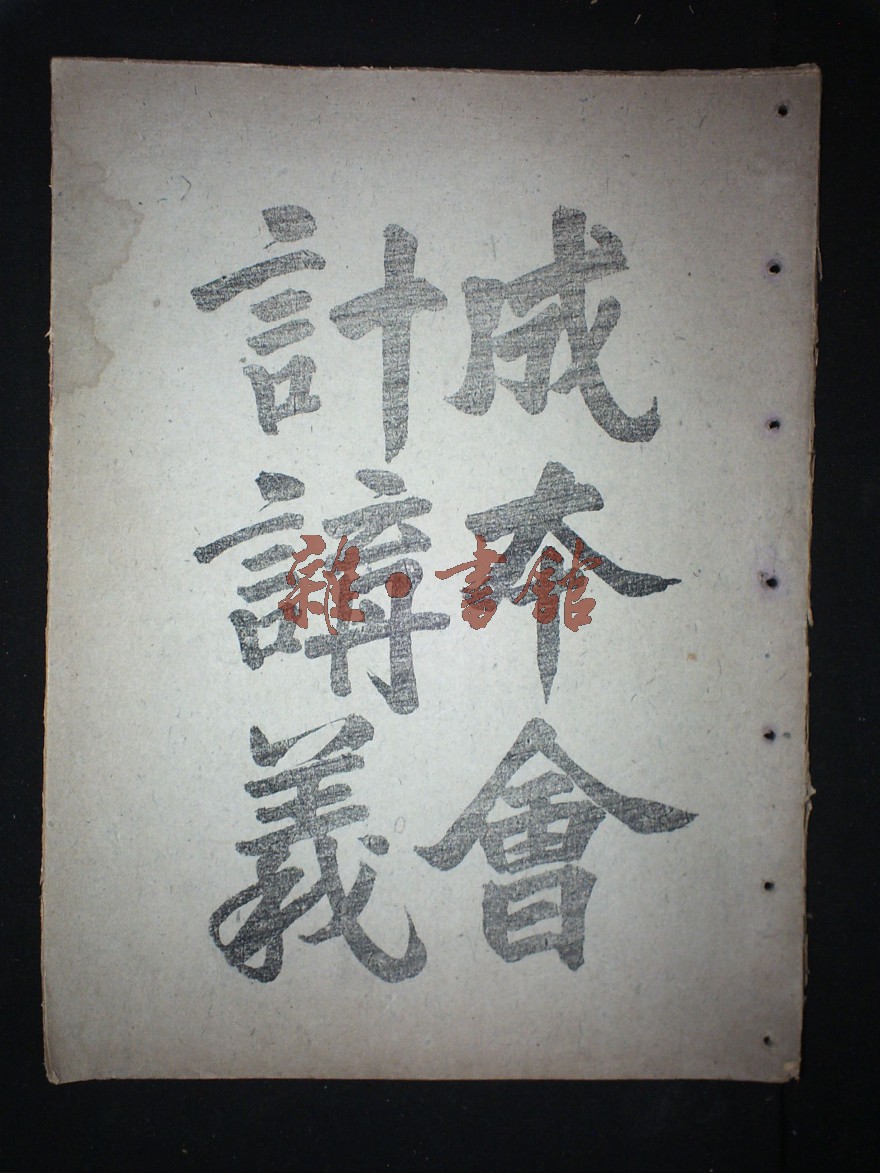 成本會
計講義
雜·書館